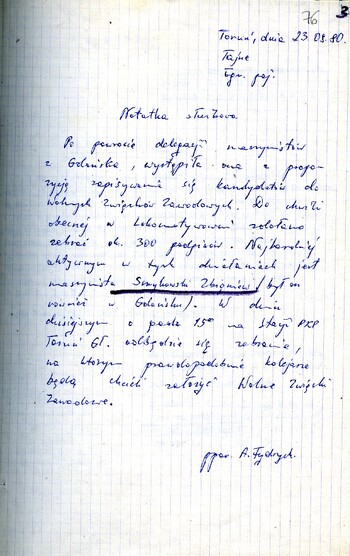 76 3
Toruń, dnia 23.08.80.
Tajne
Egz. poj.
Notatka służbowa
Po powrocie delegacji maszynistów
z Gdańska, wystąpiła ona z propo-
zycją zapisywania się kandydatów do
Wolnych Związków Zawodowych. Do chwili
obecnej w Lokomotywowni zdołano
zebrać ok. 300 podpisów. Najbardziej
aktywnym w tych działaniach jest
maszynista Zbigniew /był on
również w Gdańsku/. W dniu
dzisiejszym o godz 15°° na stacji PKP
Toruń Gł. odbędzie się zebranie,
na którym prawdopodobnie kolejarze
będą chcieli założyć Wolne Związki
Zawodowe.
ppor. A. Fydrych.